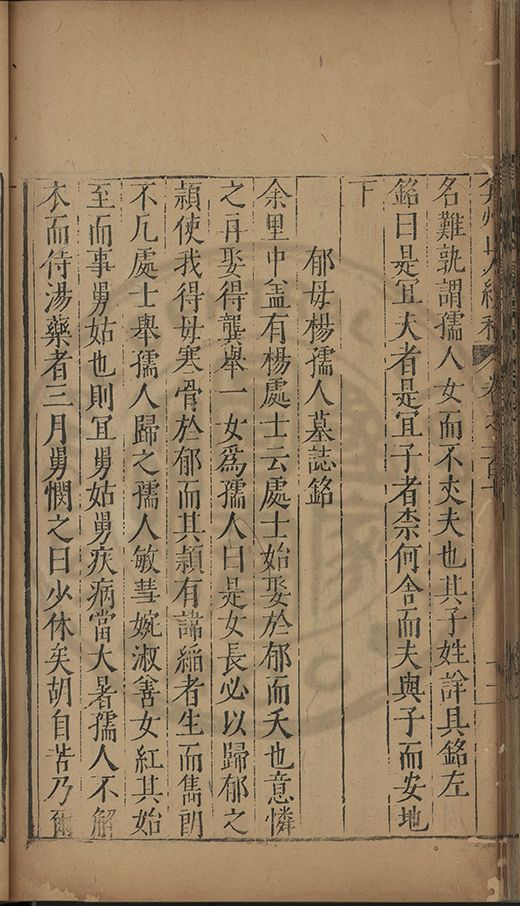 弇州山人續稿 卷之一百
名難孰謂孺人女而不丈夫也其子姓詳具銘左
銘曰是冝夫者是冝子者柰何舍而夫與子而安地
下
郁母楊孺人墓誌銘
余里中盖有楊處士云處士始娶於郁而夭也意憐
之再娶得龔舉一女爲孺人曰是女長必以歸郁之
頴使我得毋寒骨於郁而其頴有諱縚者生而雋朗
不凡處士舉孺人歸之孺人敏彗婉淑善女紅其始
至而事舅姑也則冝舅姑舅疾病當大暑孺人不解
衣而侍湯藥者三月舅憫之曰少休矣胡自苦乃爾